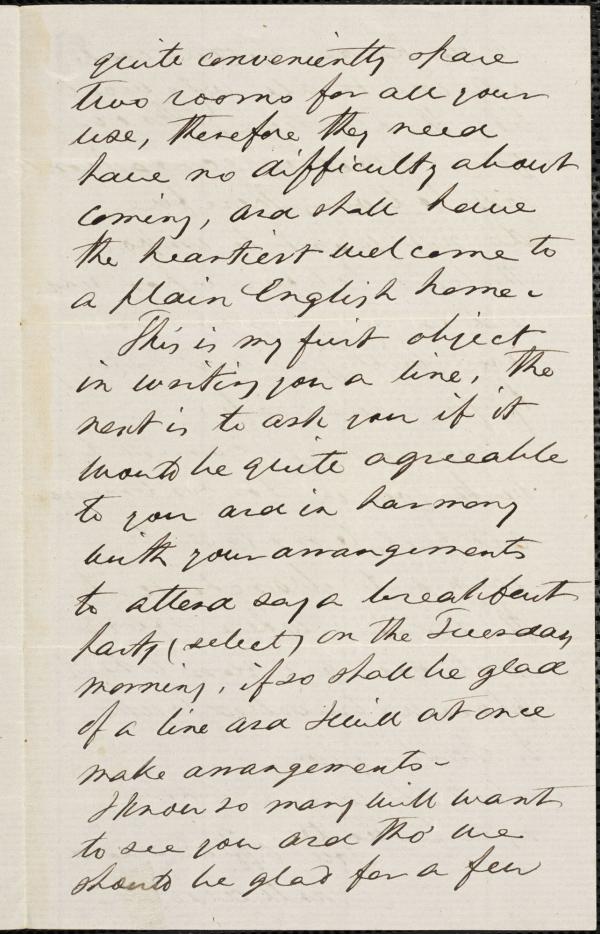 quite conveniently spare
two rooms for all your
use, therefore they need
have no difficulty about
coming, and shall have
the heartiest welcome to
a plain English home.
This is my first object
in writing you a line, The
next is to ask you if it
would be quite agreeable
to you and in harmony
with your arrangements
to attend say a breakfast
party (select) on the Tuesday
morning, if so shall be glad
of a line and I will at once
make arrangements -
I know so many will want
to see you and tho' we
should be glad for a few